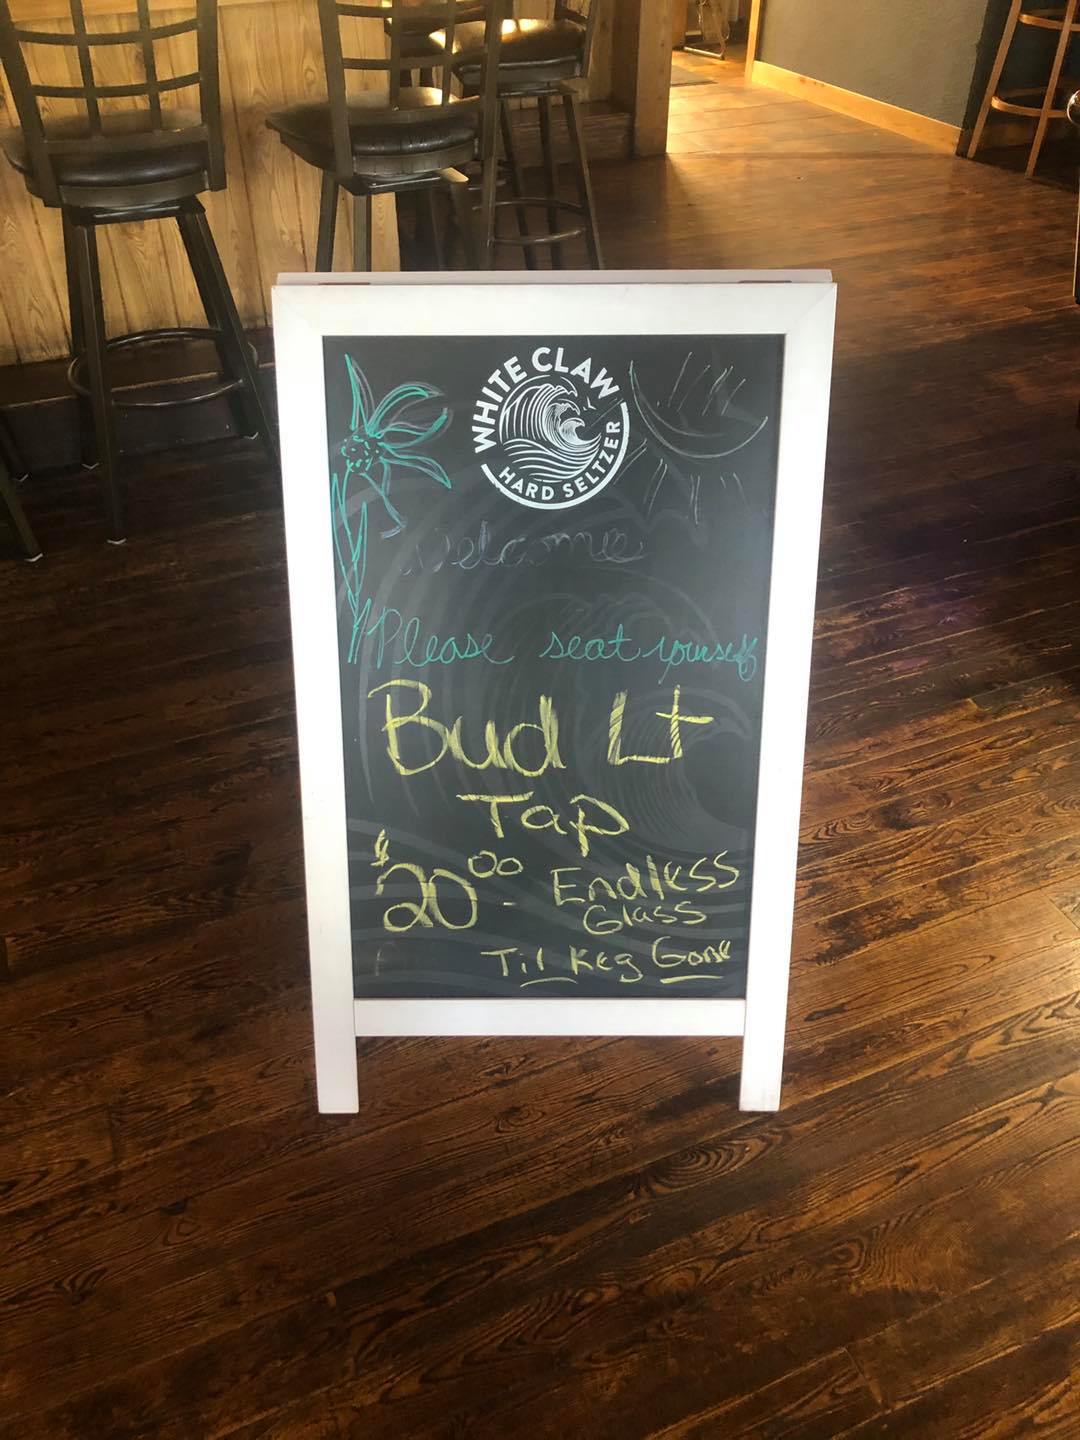 WHITE CLAW
HARD SELTZER
Welcome
Please seat yourself
Bud Lt
Tap
$20.00 - Endless
Glass
Til Keg Gone